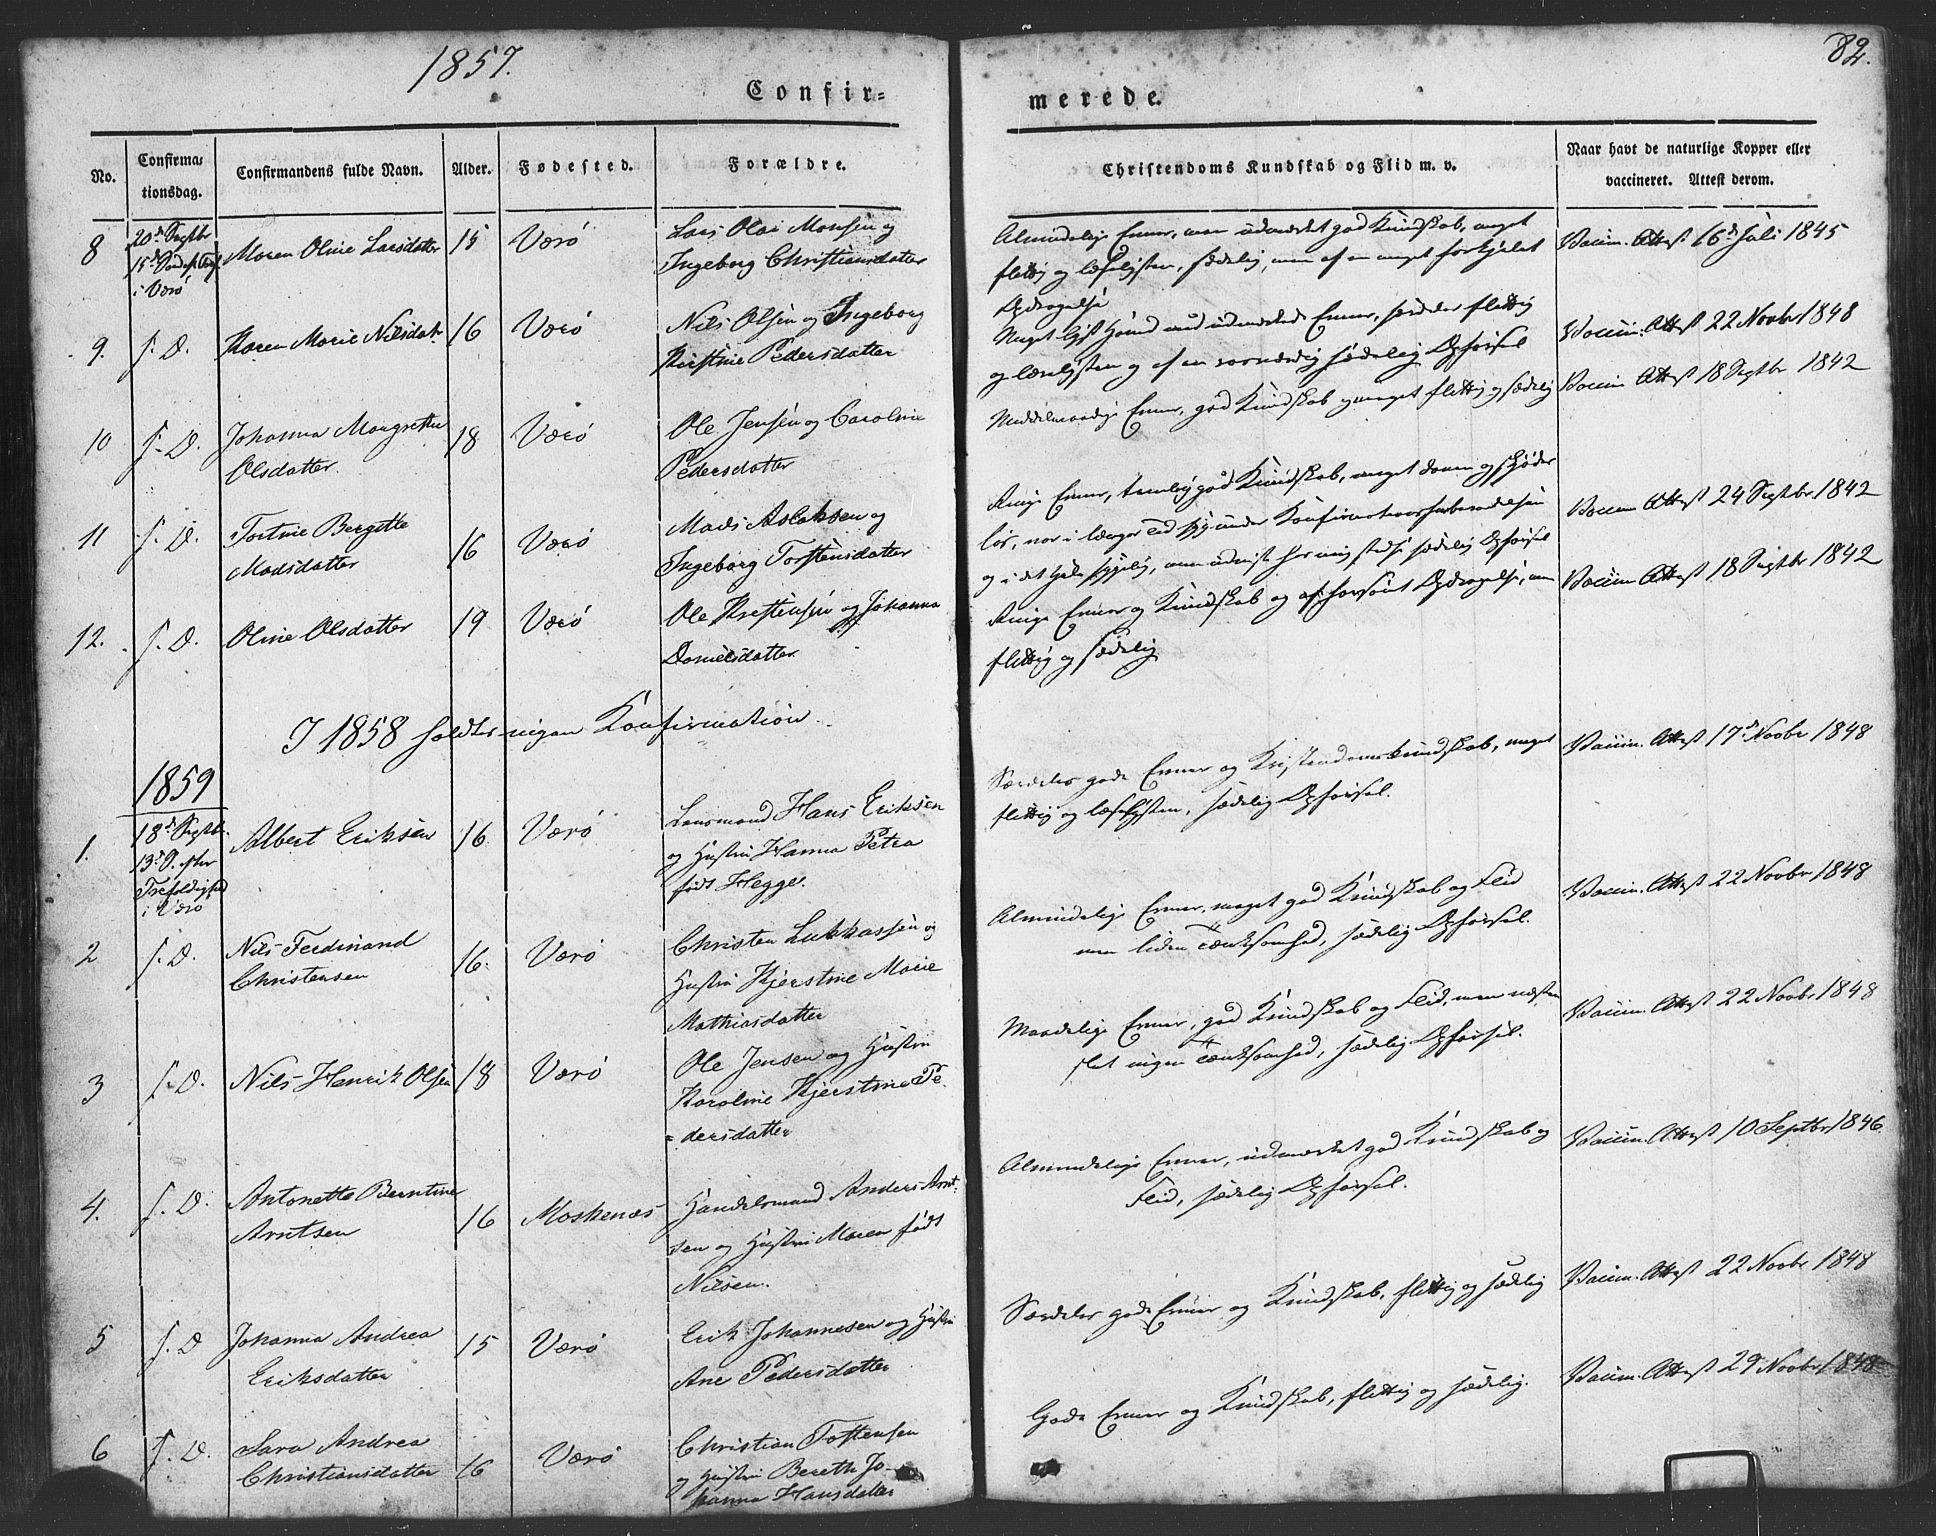 1857.
82.
Confir=
merede.
No.
Confirma=
tionsdag.
Confirmandens fulde Navn.
Alder.
Fødested.
Forældre.
Christendoms Kundskab og Flid m. v.
Naar havt de naturlige Kopper eller
vaccineret. Attest derom.
8
20d Septbr
i Værø
Maren Oline Larsdatter
15
Værø
Lars Olai Monsen og
Ingeborg Christiansdatter
Almindelige Evner, men udmærket god Kundskab, meget
flittig og læselysten, sædelig, men af en meget forkjelet
Opdragelse
Vaccin. Attest 16d Juli 1845
9.
f. D.
Karen Marie Nilsdatr
16
Værø
Nils Olsen og Ingeborg
Kirstine Pedersdatter
Meget med udmærkede Evner, særdeles flittig
og lærelysten og af en sædelig Opførsel
Vaccin. Attest 22 Novbr 1848
10
f. D.
Johanna Margrethe
Olsdatter.
18
Værø
Ole Jensen og Caroline
Pedersdatter
Middelmaadige Evner, god Kundskab og meget flittig og sædelig
Vaccin Attest 18 Septbr 1842
11
f. D.
Tortine Bergitte
Madsdatter
16
Værø
Mads Aslaksen og
Ingeborg Torstensdatter
Ringe Evner, temlig god Kundskab, meget doven og skjødes
løs, var i længere Tid syg under Konfirmationsforberedelsen
og i det hele sygelig, men udvist har sædelig Opførsel
Vaccin Attest 24 Septbr 1842
12.
f. D.
Oline Olsdatter
19
Værø
Ole Kristensen og Johanna
Danielsdatter
Ringe Evner og Kundskab og af forsømt Opdragelse, men
flittig og sædelig
Vaccin Attest 18 Septbr 1842
I 1858 holdtes ingen Konfirmation.
1859
1.
18d Septbr.
13d S. efter
Trefoldighed
i Værø
Albert Eriksen
16
Værø
Lensmand Hans Eriksen
og Hustru Hanna Petra
født Hegge.
Særdeles gode Evner og Kristendomskundskab, meget
flittig og læselysten, sædelig Opførsel.
Vaccin. Attest 17d Novbr 1848
2
f. D.
Nils Ferdinand
Christensen
16.
Værø
Christen Lukkassen og
Hustru Kjerstine Marie
Mathiasdatter
Almindelige Evner, meget god Kundskab og Flid
men liden Tænksomhed, sædelig Opførsel.
Vaccin. Attest 22 Novbr 1848
3
f. D.
Nils Henrik Olsen
18
Værø
Ole Jensen og Hustru
Karoline Kjerstine Pe=
=dersdatter
Maadelige Evner, god Kundskab og Flid, men næsten
slet ingen Tænksomhed, sædelig Opførsel.
Vaccin. Attest 22 Novbr 1848
4.
f. D.
Antonette Berntine
Arntsen
16
Moskenæs
Handelsmand Anders Arnt=
sen og Hustru Maren født
Nilsen.
Almindelige Evner, udmærket god Kundskab og
Flid, sædelig Opførsel.
Vaccin. Attest 10 Septbr 1846
5
f. D
Johanna Andrea
Eriksdatter
15
Værø
Erik Johannesen og Hustru
Ane Pedersdatter
Særdeles gode Evner og Kundskab, flittig og sædelig
Vaccin. Attest 22 Novbr 1848
6
f. D.
Sara Andrea
Christiansdatter
16
Værø
Christian Tostensen
og Hustru Bereth Jo-
hanna Hansdatter
Gode Evner og Kundskab, flittig og sædelig.
Vaccin. Attest 29 Novbr 1848